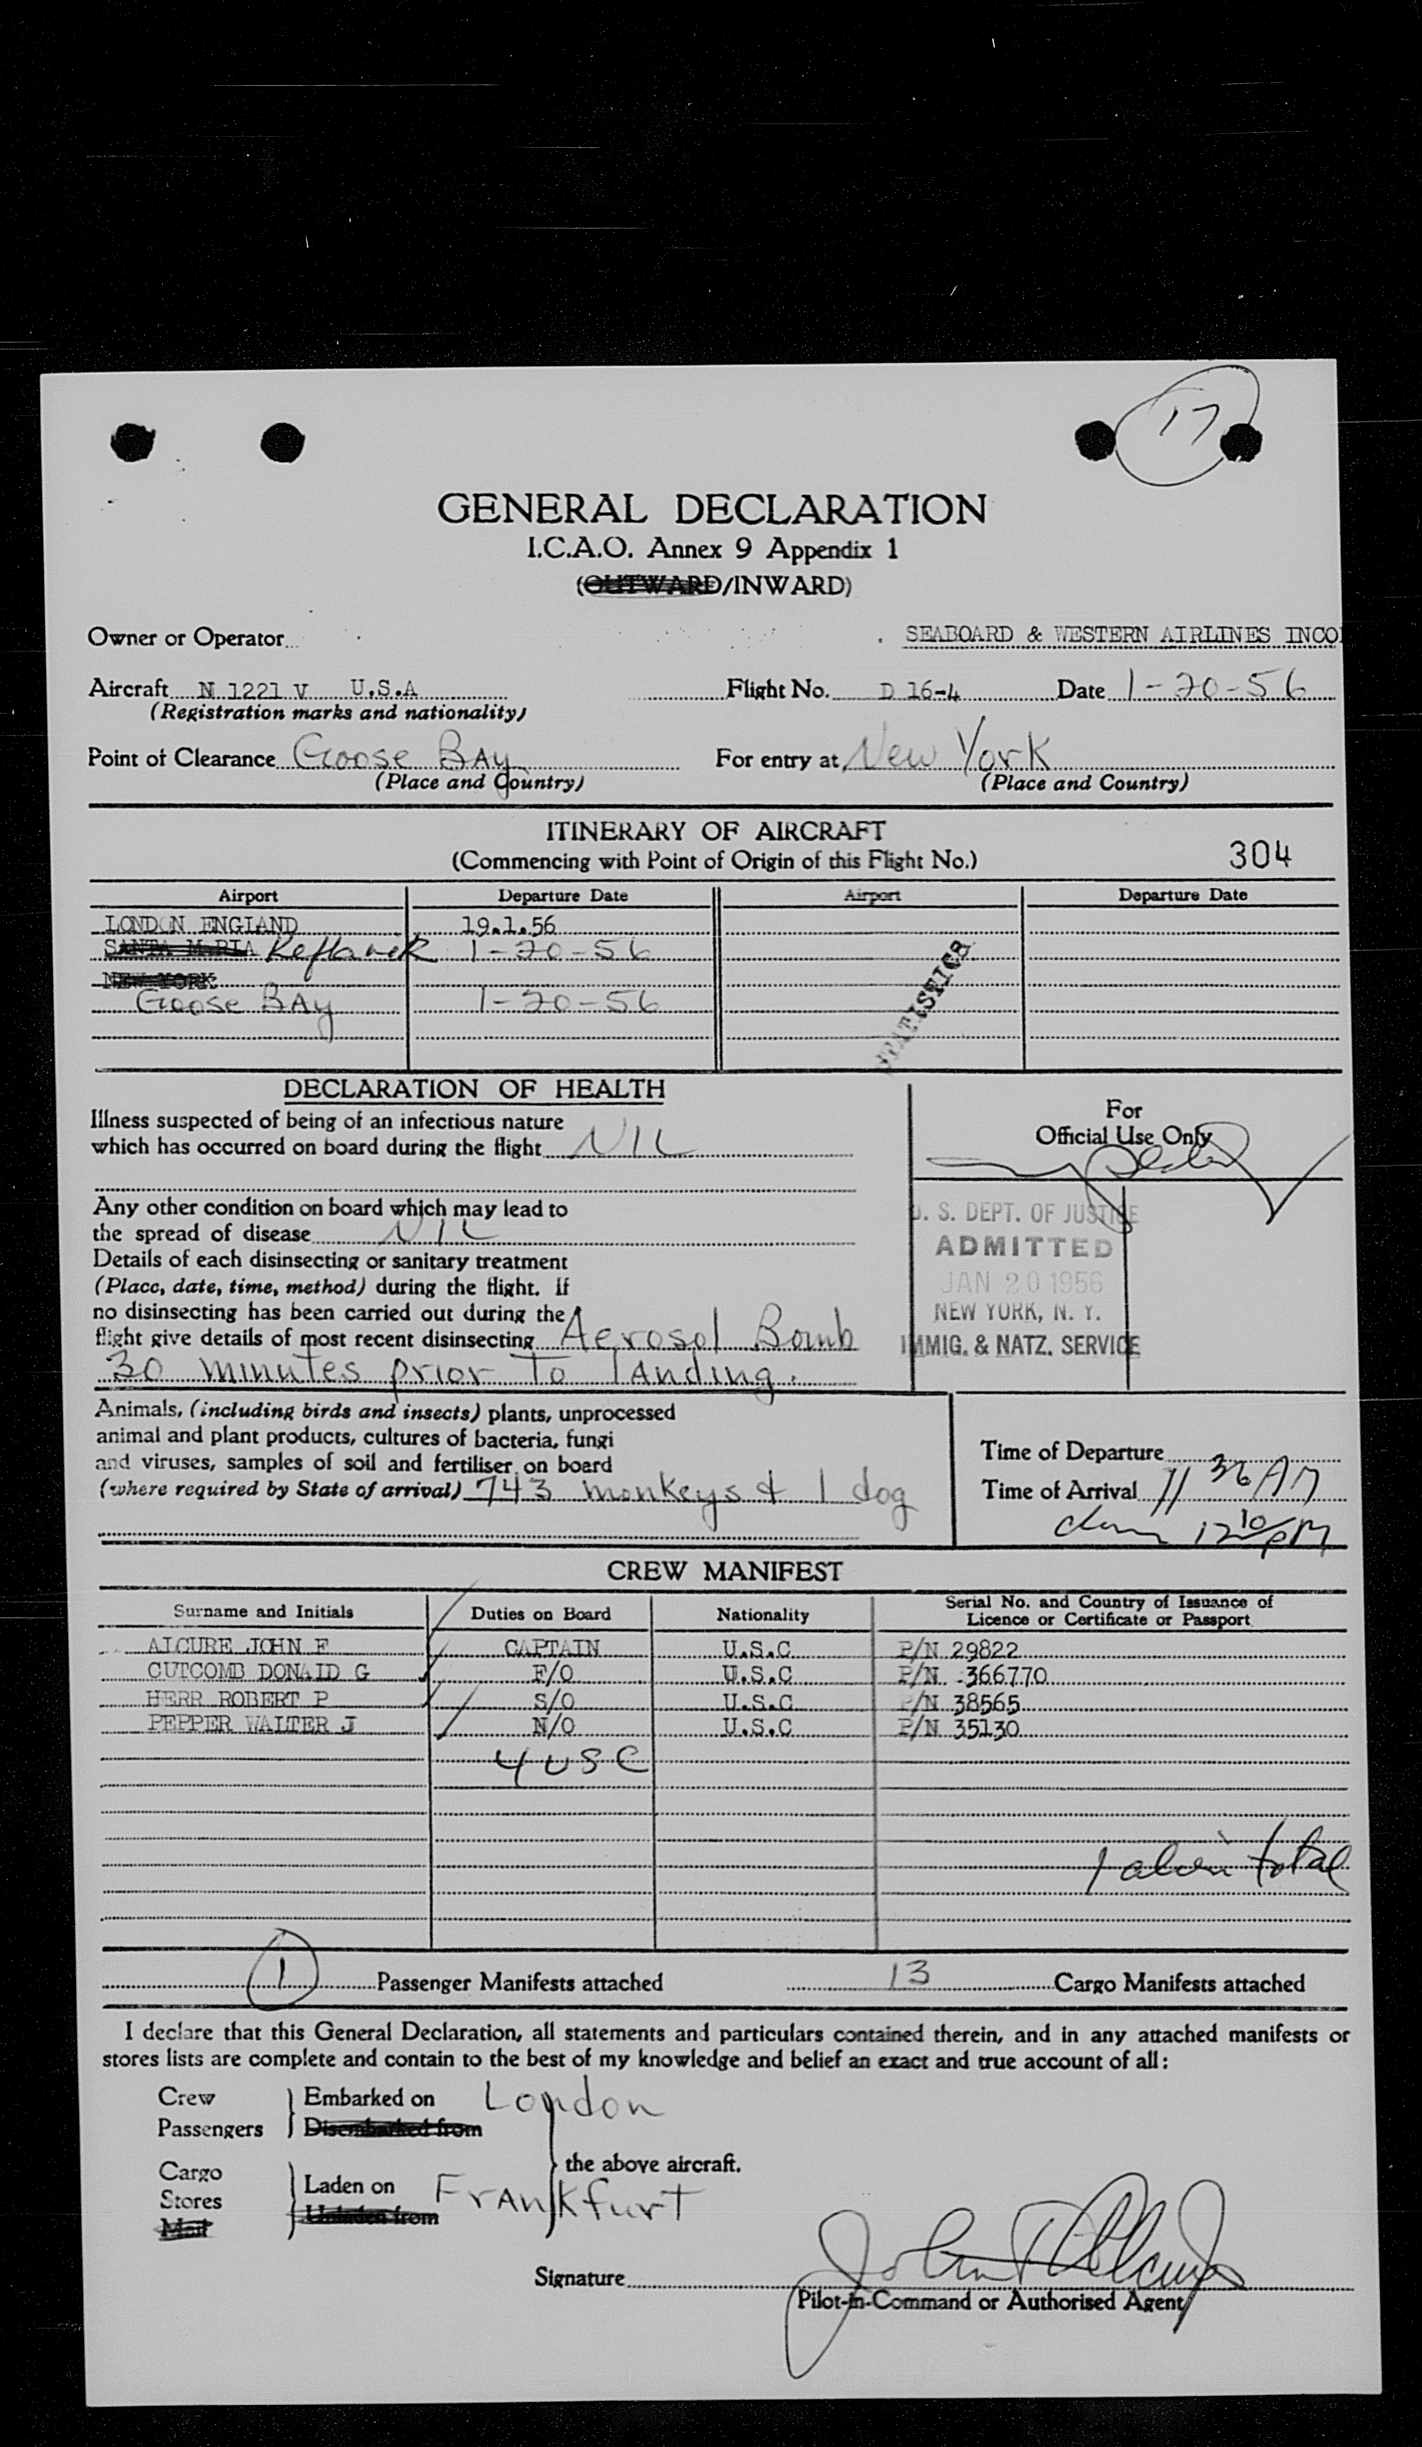 17
GENERAL DECLARATION
I.C.A.O. Annex 9 Appendix 1
(OUTWARD/INWARD)
Owner or Operator SEABOARD & WESTERN AIRLINES INCO
Aircraft N 1221 V U.S.A Flight No. D 16-4 Date 1-20-56
(Registration marks and nationality)
Point of Clearance Goose BAy For entry at New York
(Place and Country) (Place and Country)
ITINERARY OF AIRCRAFT
(Commencing with Point of Origin of this Flight No.) 304
Airport Departure Date Airport Departure Date
LONDON ENGLAND 19.1.56
SANTA MARIA Keflavik 1-20-56
NEW YORK
Goose BAy 1-20-56
STATISTICS
DECLARATION OF HEALTH
For
Official Use Only
Illness suspected of being of an infectious nature
which has occurred on board during the flight NIL
Any other condition on board which may lead to
the spread of disease NIL
Details of each disinsecting or sanitary treatment
(Place, date, time, method) during the flight. If
no disinsecting has been carried out during the
flight give details of most recent disinsecting Aerosol Bomb
30 minutes prior To lAnding.
U. S. DEPT. OF JUSTICE
ADMITTED
JAN 20 1956
NEW YORK, N. Y.
IMMIG. & NATZ. SERVICE
Animals, (including birds and insects) plants, unprocessed
animal and plant products, cultures of bacteria, fungi
and viruses, samples of soil and fertiliser on board
(where required by State of arrival) 743 monkeys & 1 dog
Time of Departure
Time of Arrival 11 36 AM
12 10 PM
CREW MANIFEST
Surname and Initials Duties on Board Nationality Serial No. and Country of Issuance of
Licence or Certificate or Passport
ALCURE JOHN F CAPTAIN U.S.C P/N 29822
CUTCOMB DONALD G F/O U.S.C P/N 366770
HERR ROBERT P S/O U.S.C P/N 38565
PEPPER WALTER J N/O U.S.C P/N 35130
4 USC
1 alien total
1 Passenger Manifests attached 13 Cargo Manifests attached
I declare that this General Declaration, all statements and particulars contained therein, and in any attached manifests or
stores lists are complete and contain to the best of my knowledge and belief an exact and true account of all:
Crew Embarked on London
Passengers Disembarked from
the above aircraft.
Cargo Laden on FrAnkfurT
Stores
Unladen from
Mail
Signature
Pilot-in-Command or Authorised Agent